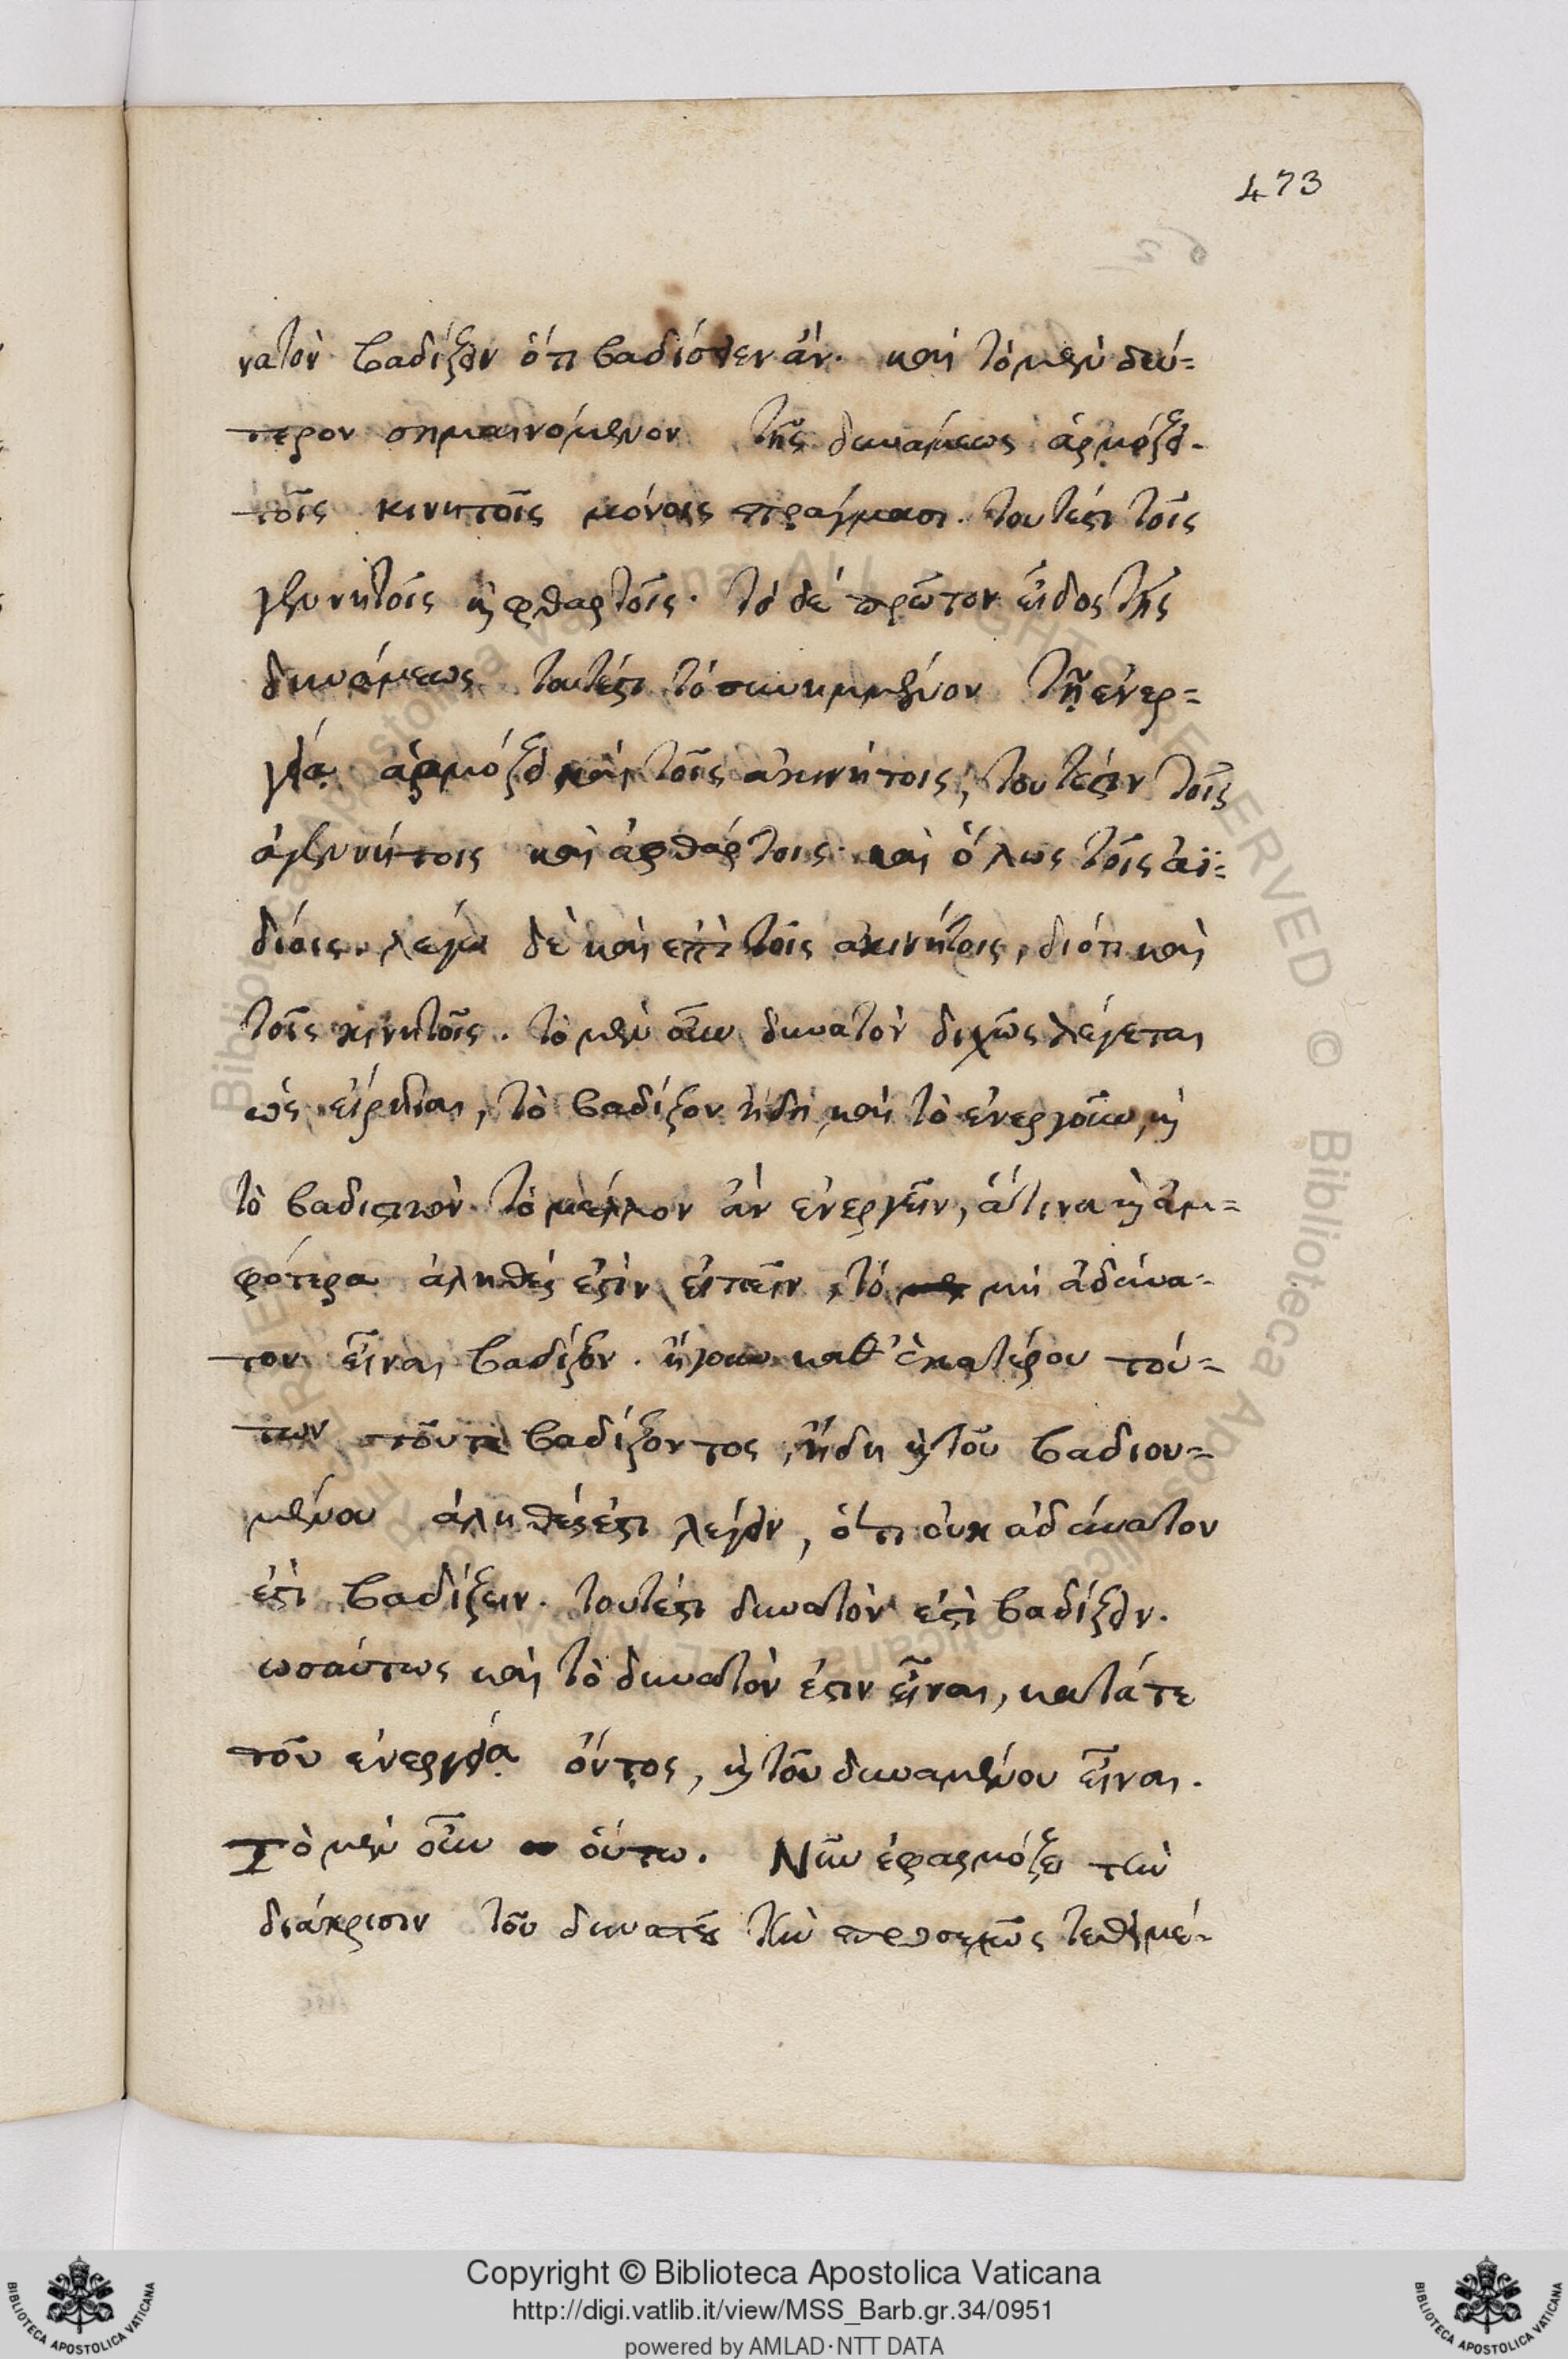 473
νατὸν βαδίζειν ὅτι βαδίσειεν ἄν. καὶ τὸ μὲν δεύ=
τερον σημαινόμενον τῆς δυνάμεως ἁρμόζει
τοῖς κινητοῖς μόνοις πράγμασι. τουτέστι τοῖς
γεννητοῖς καὶ φθαρτοῖς. τὸ δέ πρῶτον εἶδος τῆς
δυνάμεως τουτέστι τό συνημμένον τῇ ἐνερ=
γείᾳ ἁρμόζει καὶ τοῖς ἀκινήτοις, τουτέστιν τοῖς
ἀγεννήτοις καὶ ἀφθάρτοις. καὶ ὅλως τοῖς ἀϊ=
δίοις. λέγω δὲ καὶ ἐπὶ τοῖς ἀκινήτοις, διότι καὶ
τοῖς κινητοῖς. τὸ μὲν οὖν δυνατὸν διχῶς λέγεται
ὡς εἴρηται, τὸ βαδίζον ἤδη, καὶ τὸ ἐνεργοῦν, καὶ
τὸ βαδιστικὸν τὸ μέλλον ἂν ἐνεργεῖν, ἅτινα καὶ ἀμ=
φότερα ἀληθές ἐστὶν εἰπεῖν, τό μὴ ἀδύνα=
τον εἶναι βαδίζειν. ἤγουν καθ' ἑκατέρου τού=
των τοῦτε βαδίζοντος, ἤδη καὶ τοῦ βαδιου=
μένου ἀληθές ἐστι λέγειν, ὅτι οὐκ ἀδύνατον
ἐστὶ βαδίζειν. τουτέστι δυνατὸν ἐστὶ βαδίζειν.
ὡσαύτως καὶ τὸ δυνατὸν ἐστιν εἶναι, κατά τε
τοῦ ἐνεργείᾳ ὄντος, καὶ τοῦ δυναμένου εἶναι.
Τὸ μὲν οὖν οὕτω. Νῦν ἐφαρμόζει τὴν
διάκρισιν τοῦ δυνατοῦ τὴν προσεχῶς τεθεμέ=
Copyright © Biblioteca Apostolica Vaticana
http://digi.vatlib.it/view/MSS_Barb.gr.34/0951
powered by AMLAD·NTT DATA
BIBLIOTECA APOSTOLICA VATICANA
BIBLIOTECA APOSTOLICA VATICANA